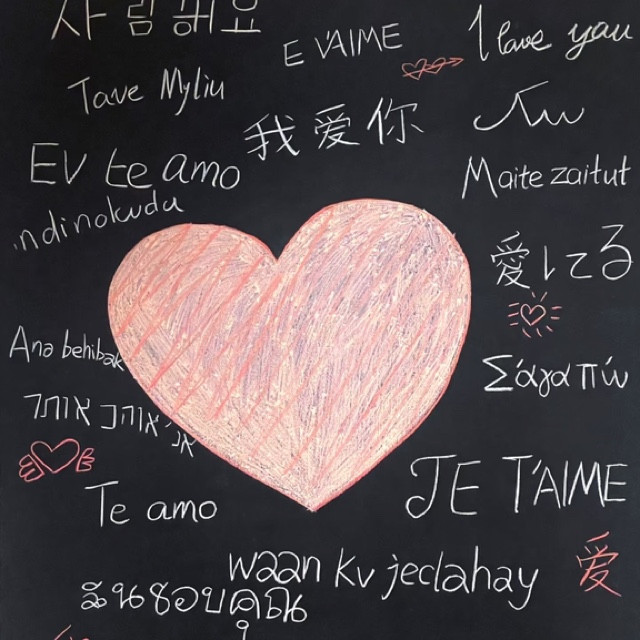 사람해요
E V'AIME
I love you
Tave Myliu
我爱你
EV te amo
Maite zaitut
ndinokuda
愛してる
Ana behibak
Σάγαπώ
אני אוהב אותך
Te amo
JE T'AIME
waan kv jeclahay
爱
ฉันชอบคุณ